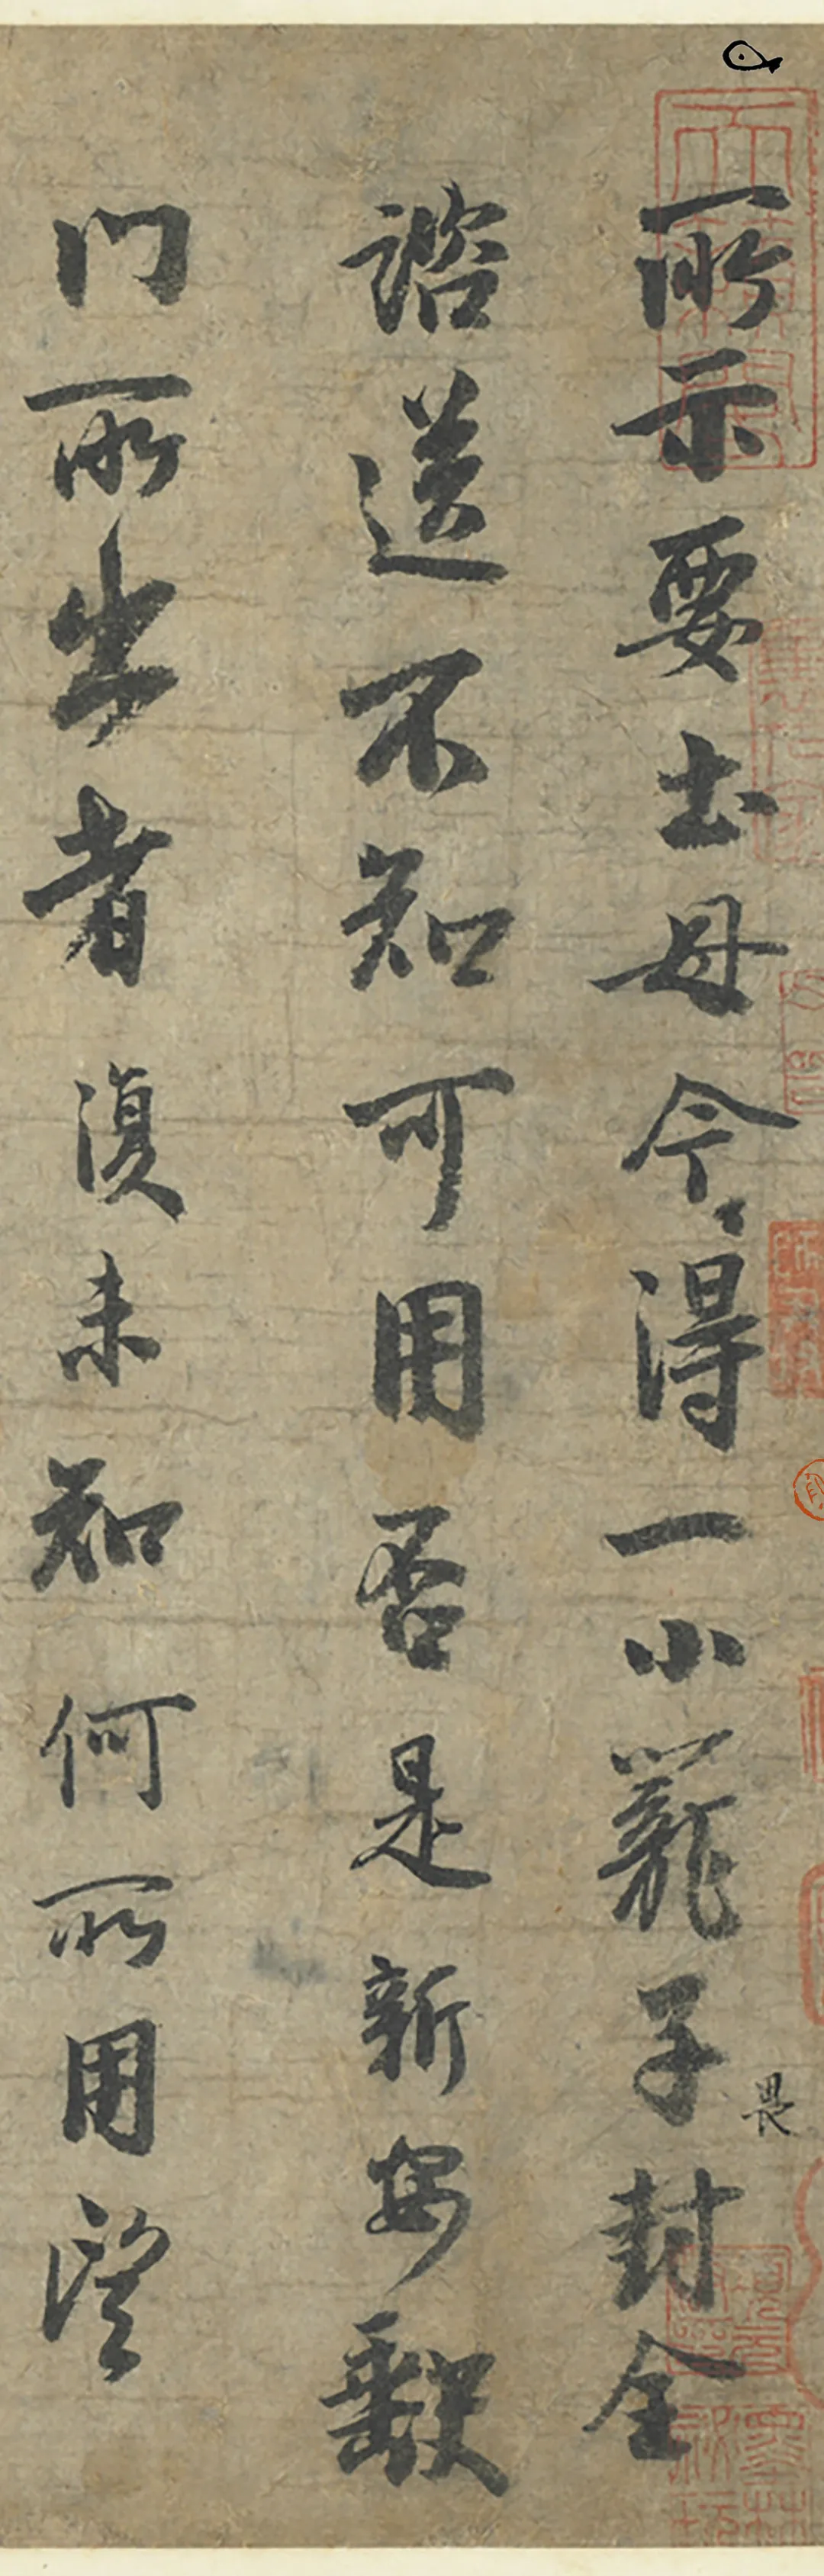 所示要土母今得一小籠子封全
諮送不知可用否是新安缺
门所出者復未知何所用望
畏